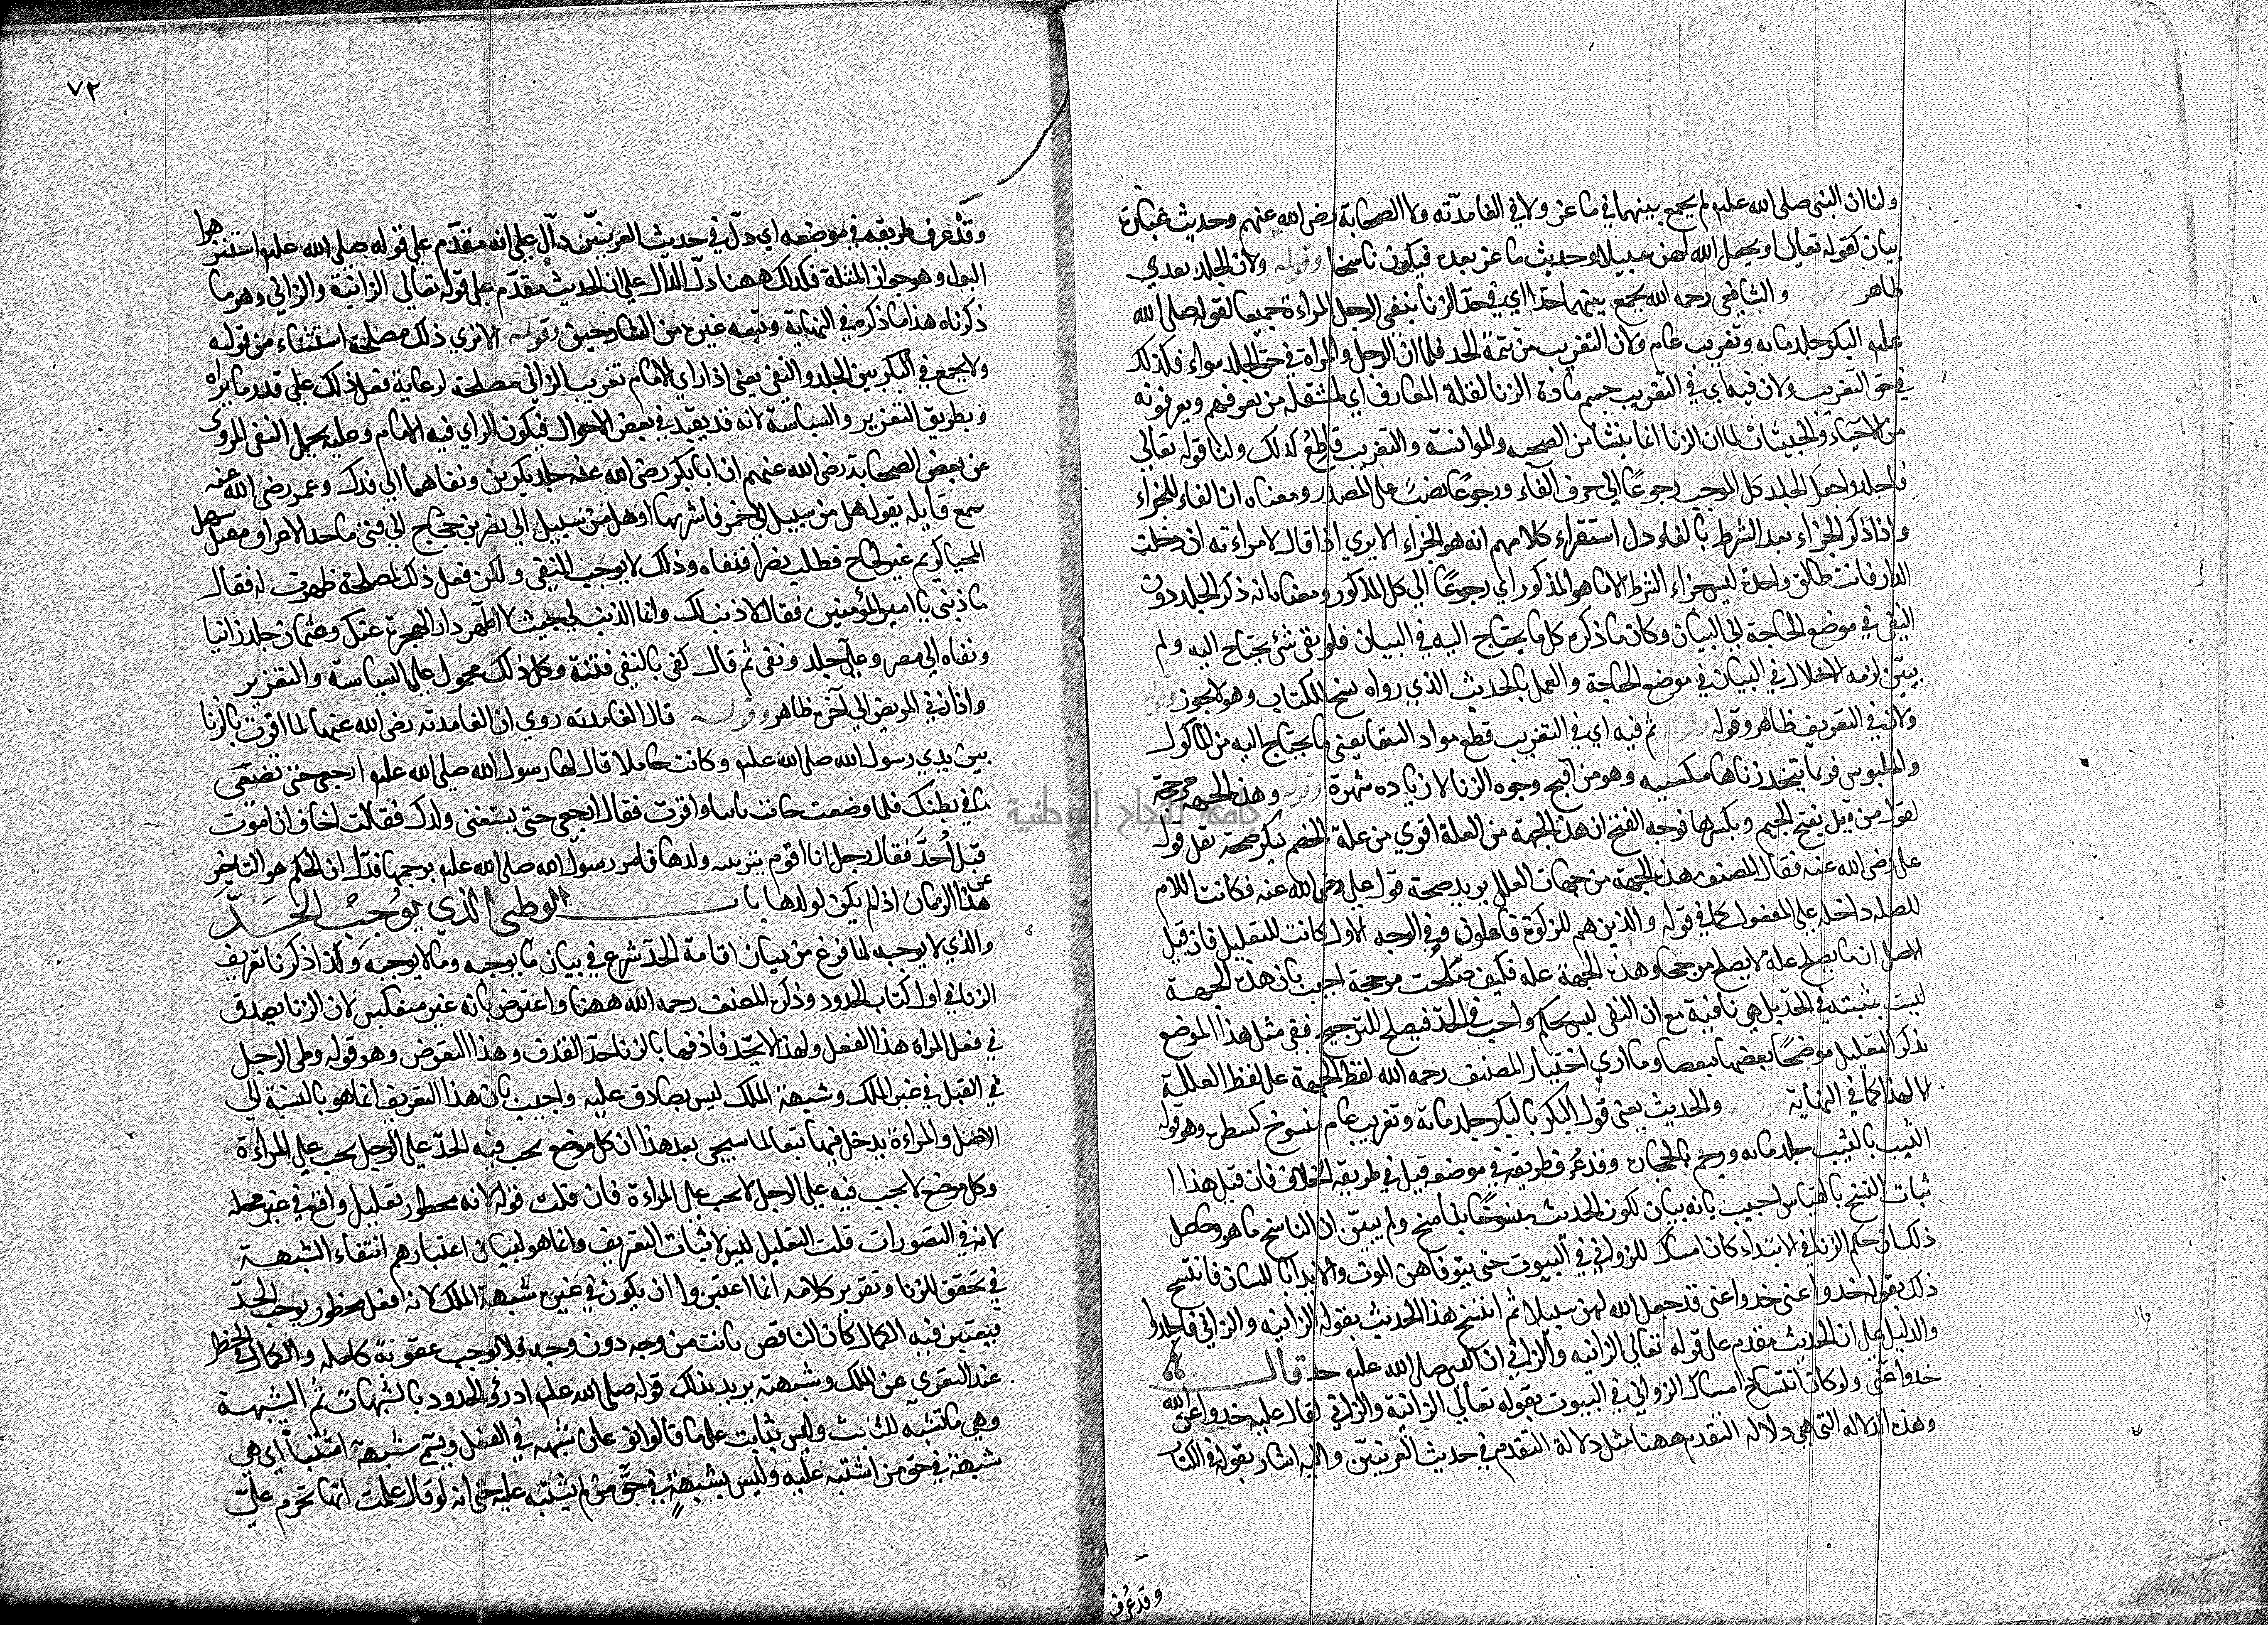 ولنا ان النبى صلى الله عليه لم يجمع بينهما في ماعز ولا في الغامدية ولا الصحابة رضى الله عنهم وحديث عبادة
بيان لقوله تعالى او يجعل الله لهن سبيلا وحديث ماعز بعده فيكون ناسخا وقوله ولان الجلد يعدي
ظاهر وقوله والشافعى رحمه الله يجمع بينهما حدا اي في حد الزنا بنفى الرجل المراءة جميعا لقوله صلى الله
عليه البكر جلد مايه وتغريب عام ولان التغريب من تتمة الحد فلما ان الرجل والمراة في حق الجلد سواء فكذلك
في حق التغريب ولان فيه اي في التغريب حسم مادة الزنا لقلة المعارف اي لمشقلة من يعرفهم ويعرفونه
من الاحباء والحبيبات لما ان الزنا انما ينشا من الصحبه والموانسة والتغريب قاطع لذلك ولنا قوله تعالى
فاجلدوا جعل الجلد كل الموجب رجوعا الى حرف الفاء ورجوعا نصب على المصدر ومعناه ان الفاء للجزاء
واذا ذكر الجزاء بعد الشرط بالفاء دل استقراء كلامهم انه هو الجزاء الا يري اذا قال لامراءته ان دخلت
الدار فانت طالق واحدة ليس جزاء الشرط الا ما هو المذكور اي رجوعا الى كل المذكور ومعناه انه ذكر الجلد دون
النفى في موضع الحاجة الى البيان وكان ما ذكره كل ما يحتاج اليه في البيان فلو بقى شئ يحتاج اليه ولم
يبين لزمه الاخلال في البيان في موضع الحاجة والعمل بالحديث الذي رواه نسخ للكتاب وهو لا يجوز وقوله
ولان في التعريف ظاهر وقوله ثم فيه اي في التغريب قطع مواد البقا يعنى ما يحتاج اليه من الماكول
والملبوس فربما يتخذ زناها مكسبه وهو من اقبح وجوه الزنا لان زياده شهرة وقوله وهذه الجهه مرجحة
لقول من قيل بفتح الجيم وبكسرها فوجه الفتح ان هذه الجهة من العلة اقوي من علة الخصم بذكر صحة نقل قول
على رضى الله عنه فقال المصنف هذه الجهة من جهات العلل يريد صحة قول على رضى الله عنه فكانت اللام
للصله داخله على المفعول كما في قوله والذين هم للزكوة فاعلون وفي الوجه الاول كانت للتعليل فان قيل
الاصل ان ما يصلح عله لا يصلح مرجحا وهذه الجهة عله فكيف صلحت مرجحة اجيب بان هذه الجهة
ليست بمثبته في الحد بل هي نافية مع ان النفى ليس بحكم واجب في الحد فيصلح للترجيح ففى مثل هذا الموضع
يذكر التعليل موضحا بعضها بعضا وما اري اختيار المصنف رحمه الله لفظ الجهة على لفظ العللة
الا لهذا كما في النهاية وقوله والحديث يعنى قوله البكر بالبكر جلد مائة وتغريب عام منسوخ كشطره وهو قوله
الثيب بالثيب جلد مايه ورجم بالحجارة وقد عرف طريقه في موضعه قيل في طريقه الخلاف فان قيل هذا ا
ثبات النسخ بالقياس اجيب بانه بيان لكون الحديث منسوخا بناسخ ولم يبين ان الناسخ ما هو وحاصل
ذلك ان حكم الزنا في الابتداء كان امساك للزوانى في البيوت حتى يتوفاهن الموت والايذا باللسان فانتسخ
ذلك بقوله خدوا عنى خدوا عنى قد جعل الله لهن سبيلا ثم انتسخ هذا الحديث بقوله الزانيه والزاني فاجلدوا
والدليل على ان الحديث مقدم على قوله تعالى الزانيه والزاني ان النبى صلى الله عليه حد قال
خدوا عنى ولو كان انتساخ امساك الزواني في البيوت بقوله تعالى الزانية والزاني لقال عليه خدوا عن الله
وهذه الدلاله التى هي دلاله التقدم ههنا مثل دلالة التقدم في حديث العرنيين واليه اشار بقوله في الكتاب
وقد عرف
٧٢
وقد عرف طريقه في موضعه اي دل في حديث العرنيين دال على انه مقدم على قوله صلى الله عليه استنزهوا
البول وهو جواز المثلة فكذلك ههنا دل الدال على ان الحديث مقدم على قوله تعالى الزانية والزاني وهو ما
ذكرناه هذا ما ذكره في النهاية وتبعه غيره من الشارحين وقوله الا نري ذلك مصلحة استثناء من قوله
ولا يجمع في البكر بين الجلد والنفى يعنى اذا راي الامام تغريب الزاني مصلحة لرعاية فعل ذلك على قدر ما يراه
وبطريق التعزير والسياسة لانه قد يفيد في بعض الاحوال فيكون الراي فيه الامام وعليه يحمل النفى المروى
عن بعض الصحابة رضى الله عنهم ان ابا بكر رضى الله عنه جلد بكرين ونفاهما الى فدك وعمر رضى الله عنه
سمع قايله يقول هل من سبيل الى خمر فاشربها او هل من سبيل الى نصر بن حجاج الى فتى ماجد الاعراق مقتبل سهل
المحيا كريم غير لجاج فطلب نصرا فنفاه وذلك لا يوجب النفى ولكن فعل ذلك لمصلحة ظهرت له فقال
ما ذنبى يا امير المؤمنين فقال لا ذنب لك وانما الذنب لي حيث لا اطهر دار الهجرة عنك وعثمان جلد زانيا
ونفاه الى مصر وعلى جلد ونفى ثم قال كفى بالنفى فتنة وكل ذلك محمول على السياسة والتعزير
واذا زنى المريض الى آخره ظاهر وقوله قال الغامدية روي ان الغامدته رضى الله عنها لما اقرت بالزنا
بين يدي رسول الله صلى الله عليه وكانت حاملا قال لها رسول الله صلى الله عليه ارجعى حتى تضعى
ما في بطنك فلما وضعت جاءت ثانيا واقرت فقال ارجعى حتى يستغنى ولدك فقالت اخاف ان اموت
قبل احد فقال رجل انا اقوم بتربيه ولدها فامر رسول الله صلى الله عليه برجمها فدل ان الحكم هو التاخير
عن هذا الزمان اذا لم يكن لولدها باب الوطى الذي يوجب الحد
والذي لا يوجبه لما فرغ من بيان اقامة الحد شرع في بيان ما يوجبه وما لا يوجبه وكذا ذكرنا تعريف
الزنا في اول كتاب الحدود وذكره المصنف رحمه الله ههنا واعترض بانه غير منعكس لان الزنا يصدق
في فعل المراة هذا الفعل ولهذا لا يحد قاذفها بالزنا حد القذف وهذا التعرض وهو قوله وطى الرجل
في القبل في غير الملك وشبهة الملك ليس بصادق عليه واجيب بان هذا التعريف انما هو بالنسبة الى
الاصل والمراءة يدخل فيها تبعا لما سيجى بعد هذا ان كل موضع يجب فيه الحد على الرجل يجب على المراءة
وكل موضع لا يجب فيه على الرجل لا يجب على المراءة فان قلت قوله لانه محظور تعليل واقع في غير محله
لانه في التصورات قلت التعليل ليس لاثبات التعريف وانما هو لبيان اعتبارهم انتفاء الشبهة
في تحقق الزنا وتقرير كلامه انما اعتبروا ان يكون في غير شبهة الملك لانه فعل محظور يوجب الحد
فيعتبر فيه الكمال كان الناقص ثابت من وجه دون وجه فلا يوجب عقوبة كامله والكمال في الحظر
عند التعري عن الملك وشبهته يريد بذلك قوله صلى الله عليه ادرؤا الحدود بالشبهات ثم الشبهة
وهي ما تشبه للثابت وليس بثابت على ما قالوا نوعان شبهه في الفعل ويسمى شبهة اشتباه اي هي
شبهة في حق من اشتبه عليه وليس بشبهة في حق من لم يشتبه عليه حتى انه لو قال علمت انها تحرم على
جامعة النجاح الوطنية